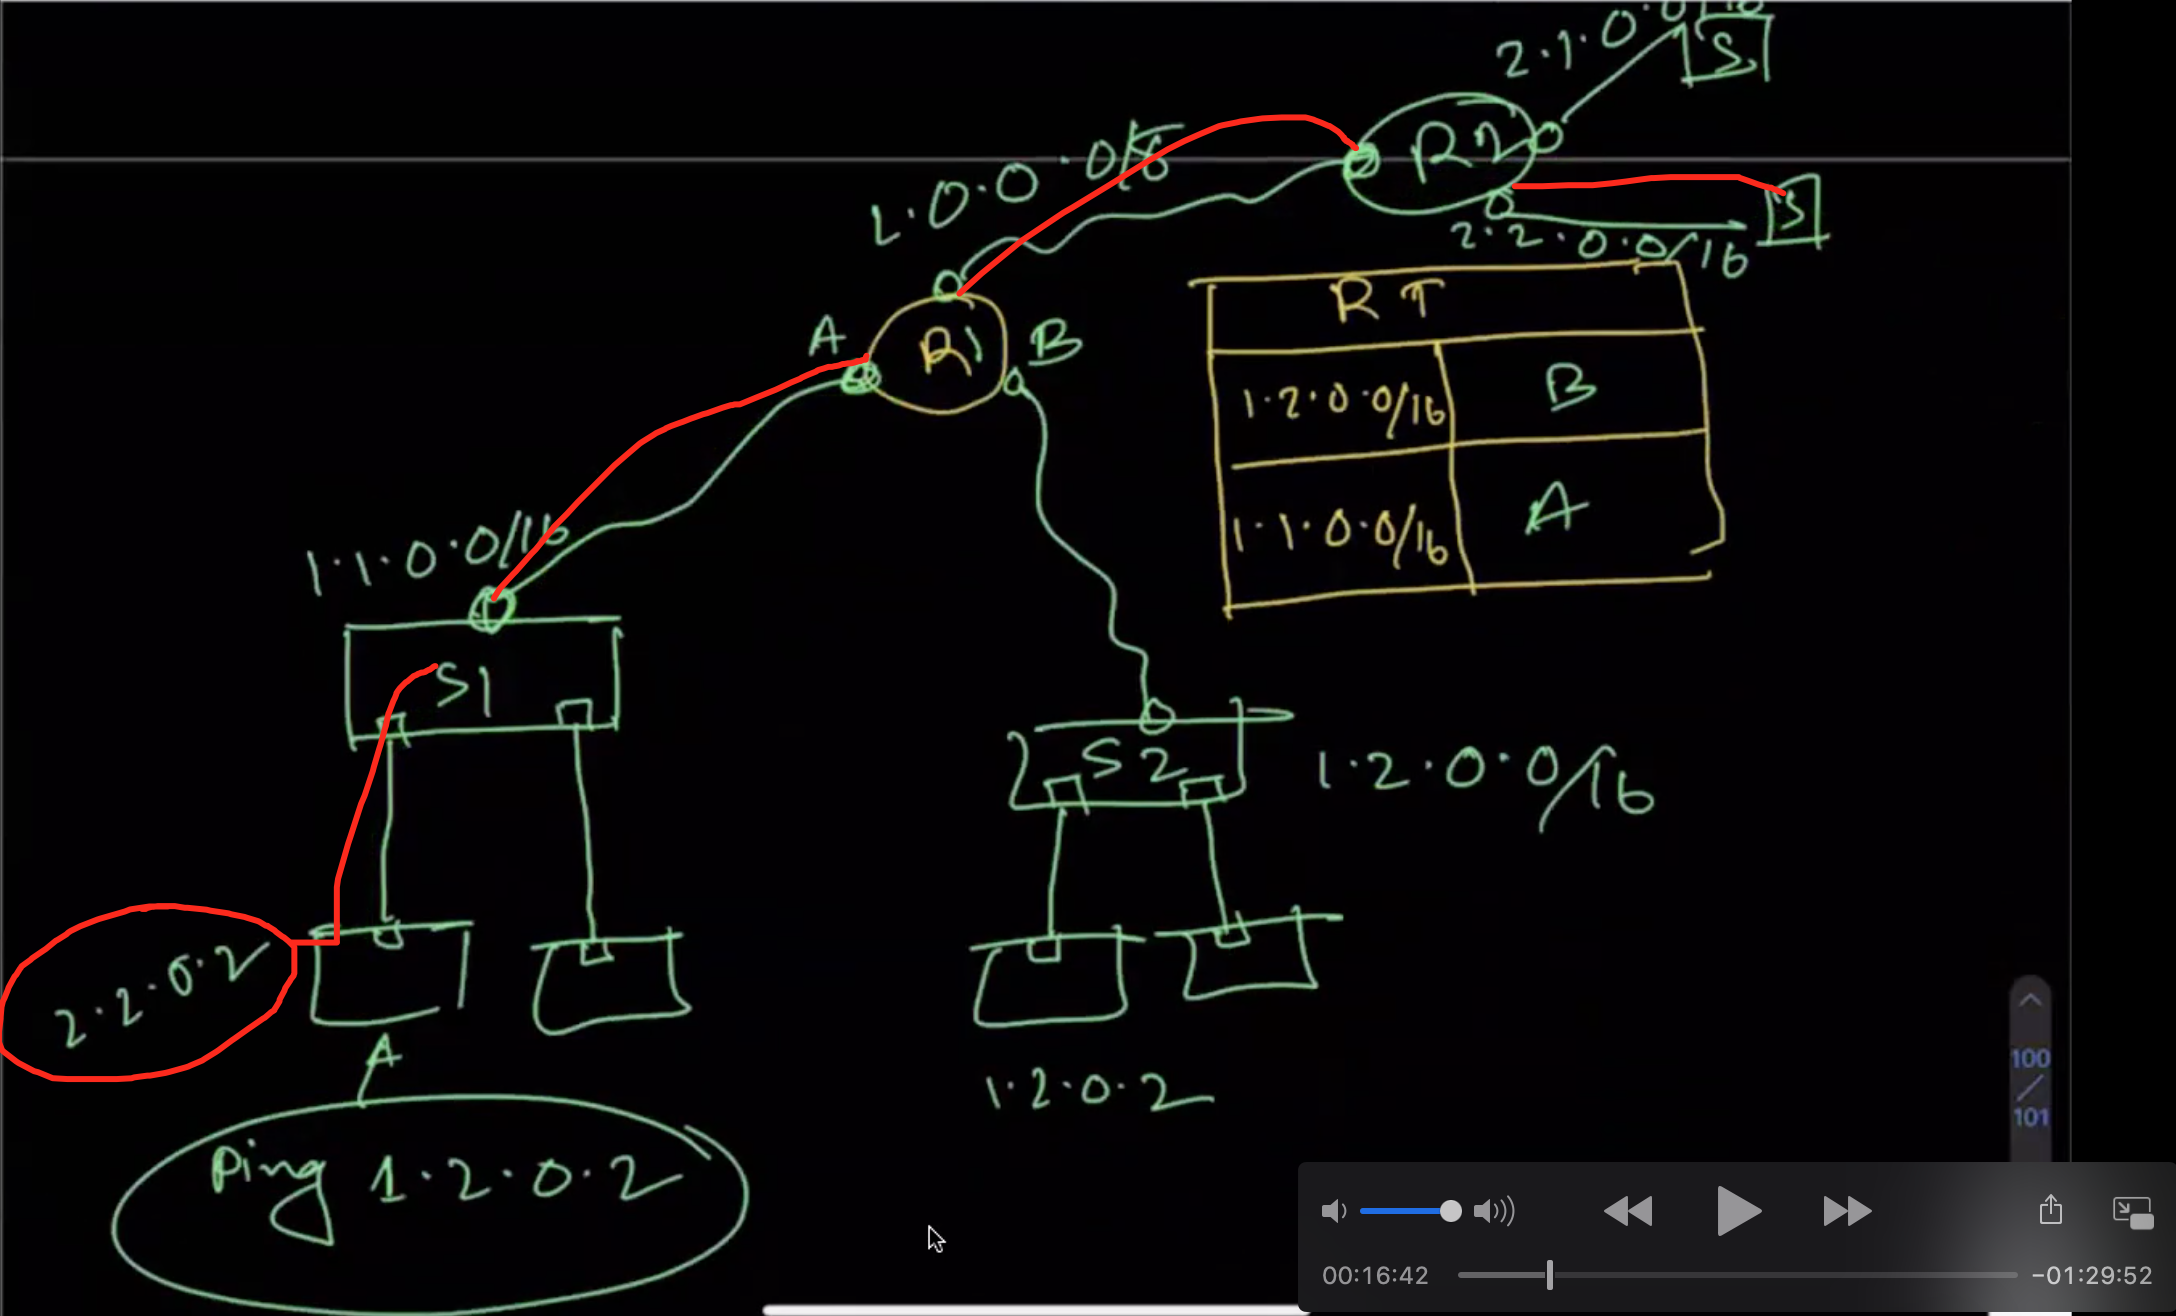 2.1.0.0/16
S
R2
1.0.0.0/8
S
2.2.0.0/16
A
R1
B
RT
1.2.0.0/16 B
1.1.0.0/16 A
1.1.0.0/16
S1
S2
1.2.0.0/16
2.2.0.2
A
1.2.0.2
Ping 1.2.0.2
100
/
101
00:16:42
-01:29:52